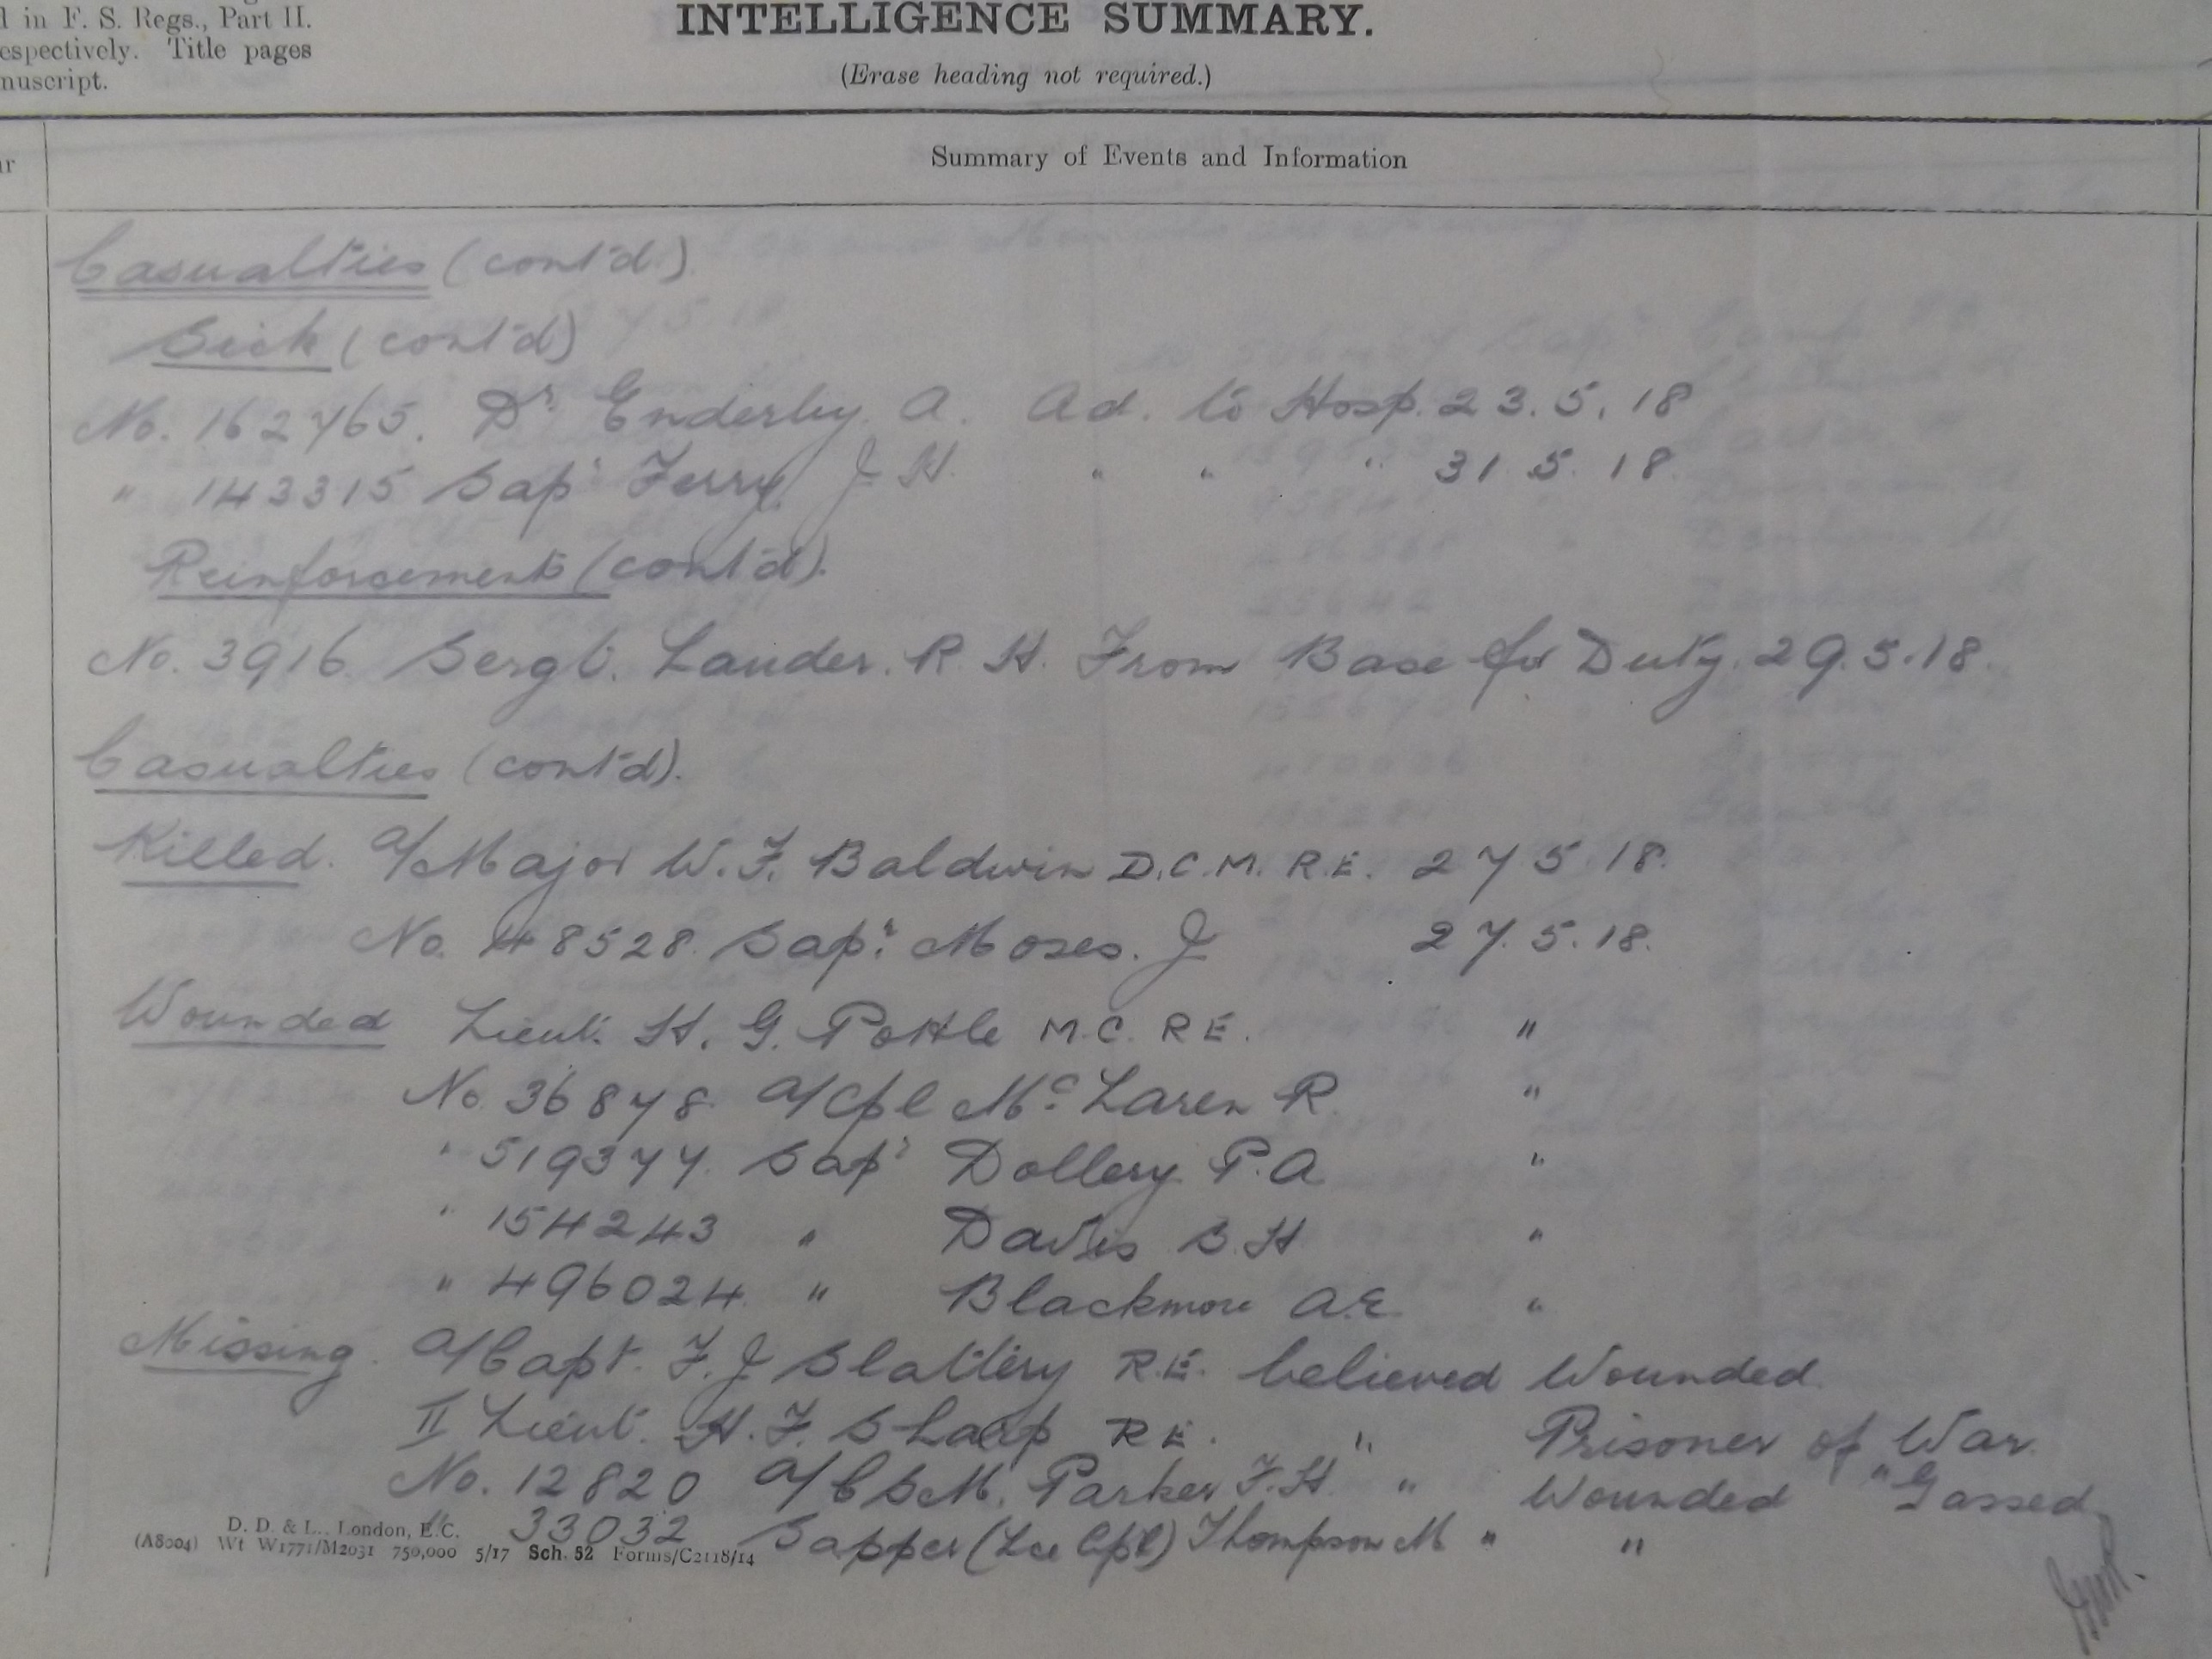 d in F. S. Regs., Part II.
espectively. Title pages
nuscript.
INTELLIGENCE SUMMARY.
(Erase heading not required.)
Summary of Events and Information
Casualties (cont'd)
Sick (cont'd)
No. 162765. Dr. Enderby. A. Ad. to Hosp. 23.5.18
" 143315 Sapr Ferry J H. " " " 31.5.18
Reinforcements (cont'd).
No. 3916 Sergt. Lauder. R H. From Base for Duty. 29.5.18.
Casualties (cont'd).
Killed. A/Major W. F. Baldwin D.C.M. R.E. 27 5 18.
No. 48528. Sapr. Moses. J 27.5.18.
Wounded Lieut. H. G. Pottle M.C. R E. "
No 36878 A/Cpl Mc Laren R. "
" 519377. Sapr Dollery P.A "
" 154243 " Davies S.H "
" 496024 " Blackmore A.E. "
Missing. A/Capt. F. J Slattery R.E. believed Wounded.
II Lieut. H. F. Sharp R E. " Prisoner of War.
No. 12820 A/C S M. Parker F. H. " Wounded "Gassed
" 33032 Sapper (Lce Cpl) Thompson M " "
D. D. & L., London, E.C.
(A8004) Wt W1771/M2031 750,000 5/17 Sch. 52 Forms/C2118/14